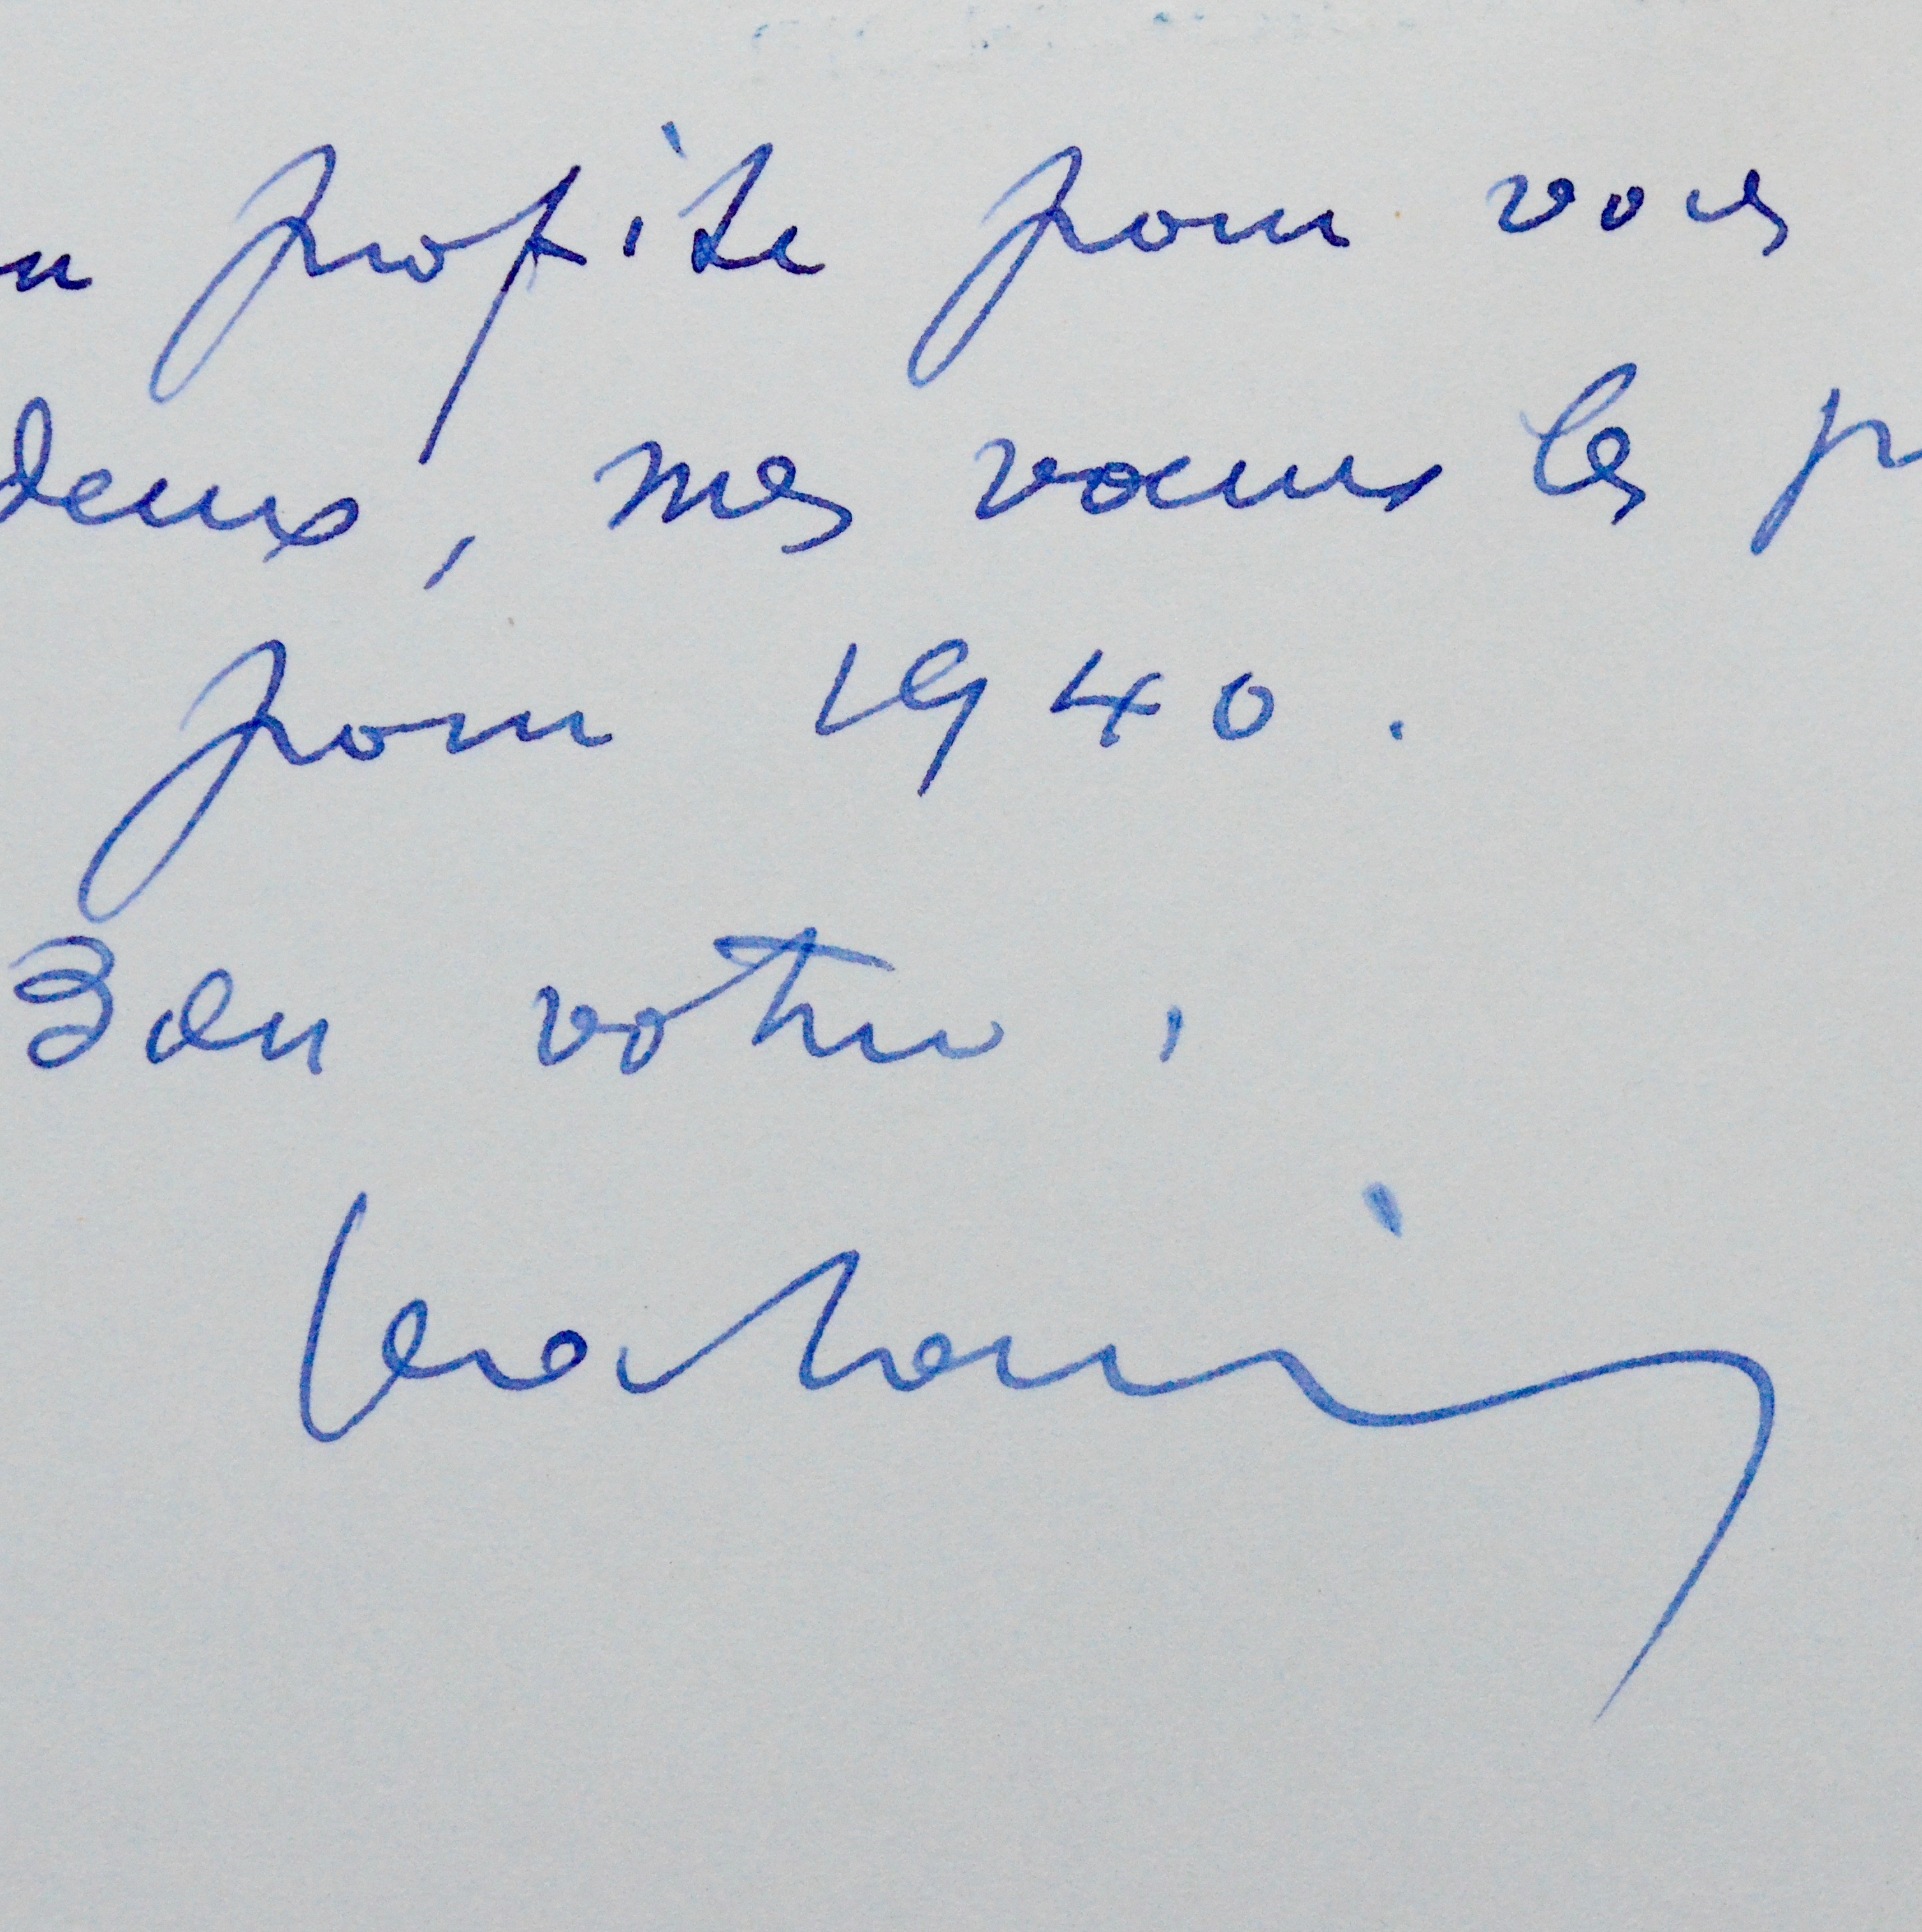 en profite pour vous
deux, mes vœux les p
pour 1940.
Bien votre,